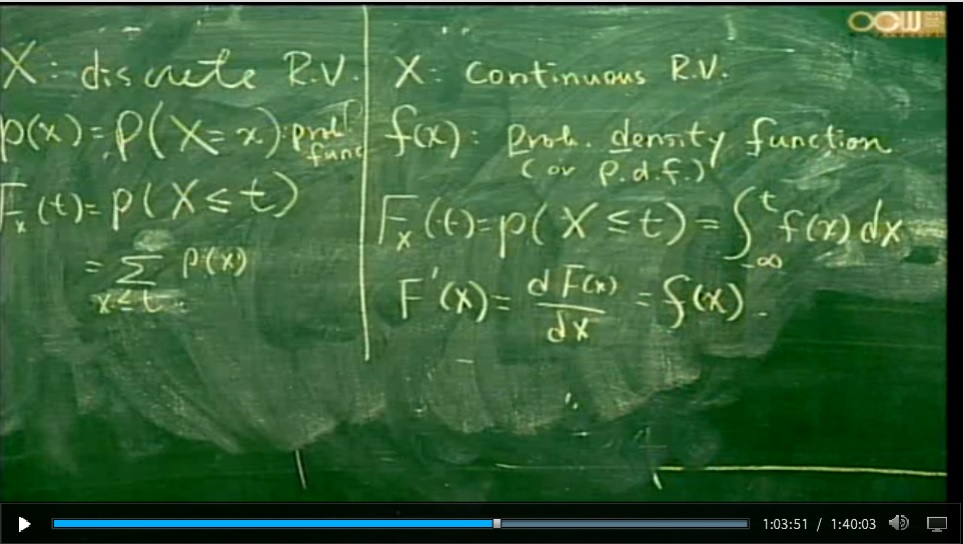 OCW
X: discrete R.V.
p(x) = P(X = x) : prob. func
F_X(t) = p(X ≤ t)
= ∑ p(x)
x ≤ t
X: continuous R.V.
f(x) : prob. density function
(or p.d.f.)
F_X(t) = p(X ≤ t) = ∫_{-∞}^{t} f(x) dx
F'(x) = dF(x)/dx = f(x)
1:03:51 / 1:40:03